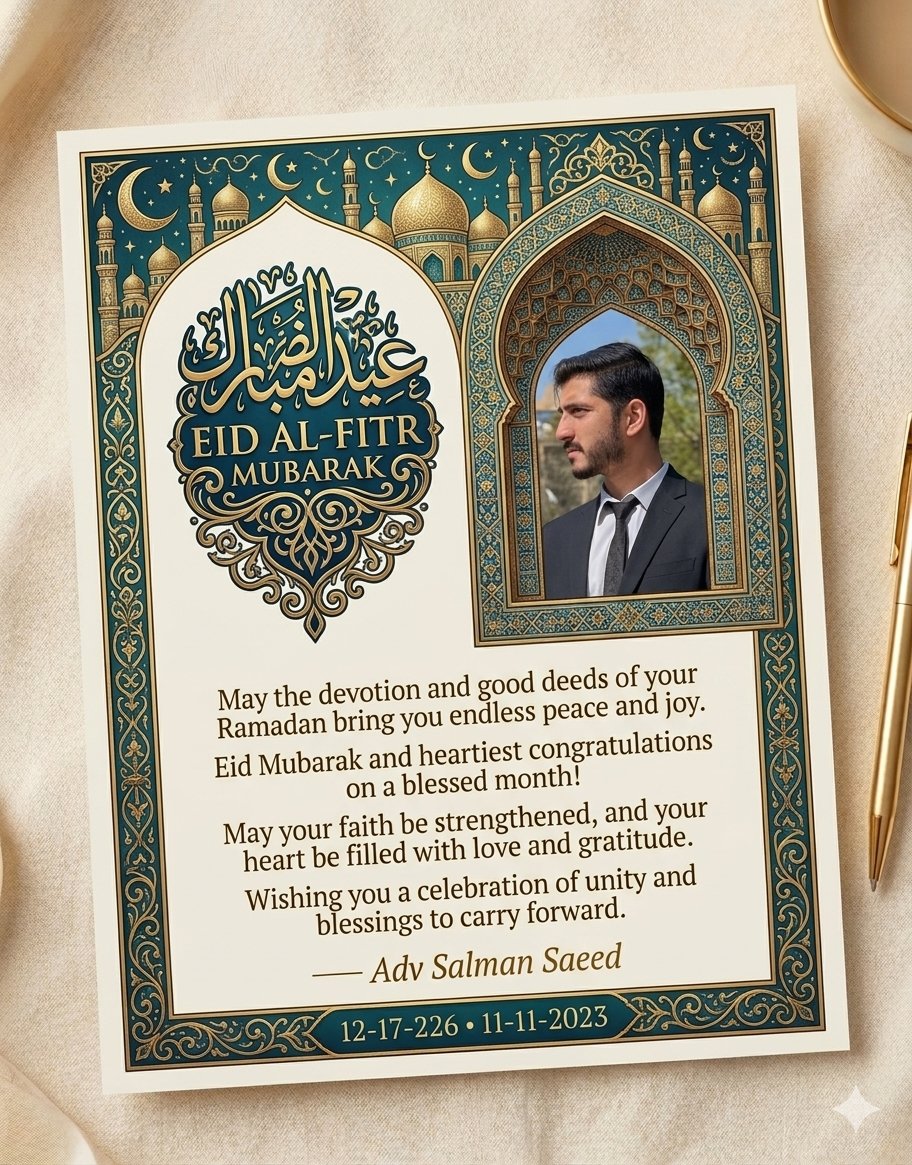 عيد
مبارك
EID AL-FITR
MUBARAK
May the devotion and good deeds of your
Ramadan bring you endless peace and joy.
Eid Mubarak and heartiest congratulations
on a blessed month!
May your faith be strengthened, and your
heart be filled with love and gratitude.
Wishing you a celebration of unity and
blessings to carry forward.
— Adv Salman Saeed
12-17-226 • 11-11-2023